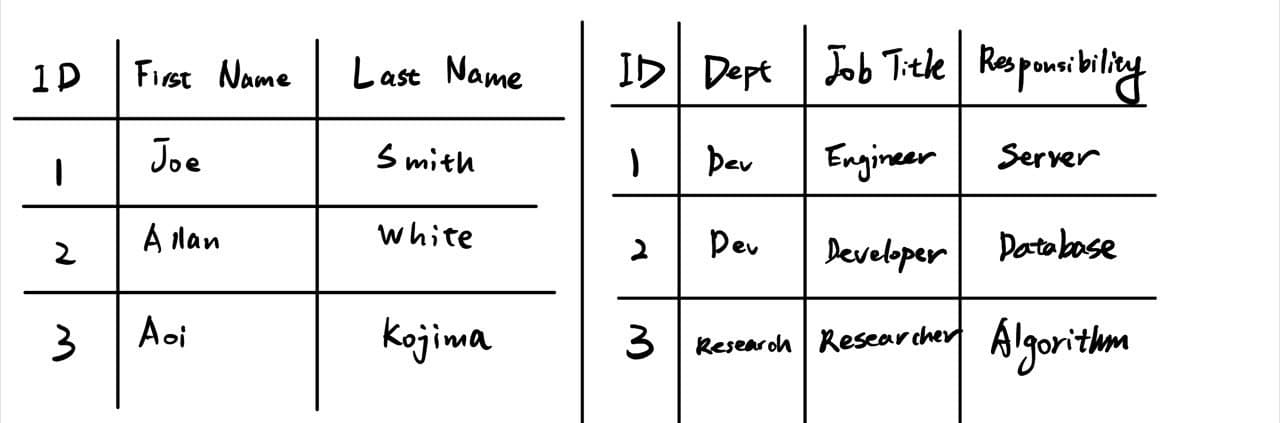 ID First Name Last Name
1 Joe Smith
2 Allan White
3 Aoi Kojima
ID Dept Job Title Responsibility
1 Dev Engineer Server
2 Dev Developer Database
3 Research Researcher Algorithm